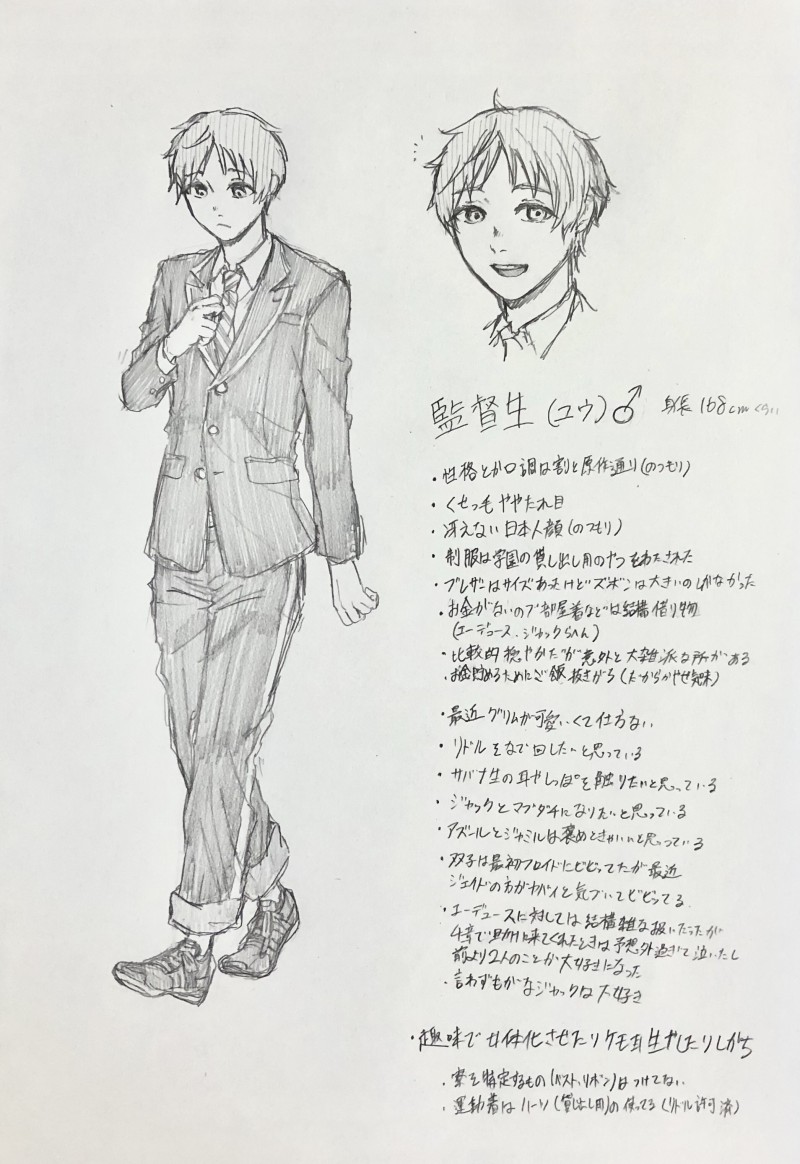 監督生(ユウ)♂ 身長 168cmくらい
・性格とか口調は割と原作通り(のつもり)
・くせっ毛ややたれ目
・冴えない日本人顔(のつもり)
・制服は学園の貸し出し用のやつをわたされた
・ブレザーはサイズあったけどズボンは大きいのしかなかった
・お金がないので部屋着などは結構借り物
(エーデュース、ジャックらへん)
・比較的穏やかだが意外と大雑派な所がある
・お金貯めるためにご飯抜きがち(だからかやせ気味)
・最近グリムが可愛いくて仕方ない
・リドルをなで回したいと思っている
・サバナ生の耳やしっぽを触りたいと思っている
・ジャックとマブダチになりたいと思っている
・アズールとジャミルは褒めときゃいいと思っている
・双子は最初フロイドにビビってたが最近
ジェイドの方がヤバイと気づいてビビってる
・エーデュースに対しては結構雑な扱いだったが
4章で助けに来てくれたときは予想外過ぎて泣いたし
前より2人のことが大好きになった
・言わずもがなジャックは大好き
・趣味で女体化させたりケモ耳生やしたりしがち
・寮を特定するもの(ベスト、リボン)はつけてない
・運動着はハーツ(貸出し用)の使ってる(リドル許可済)